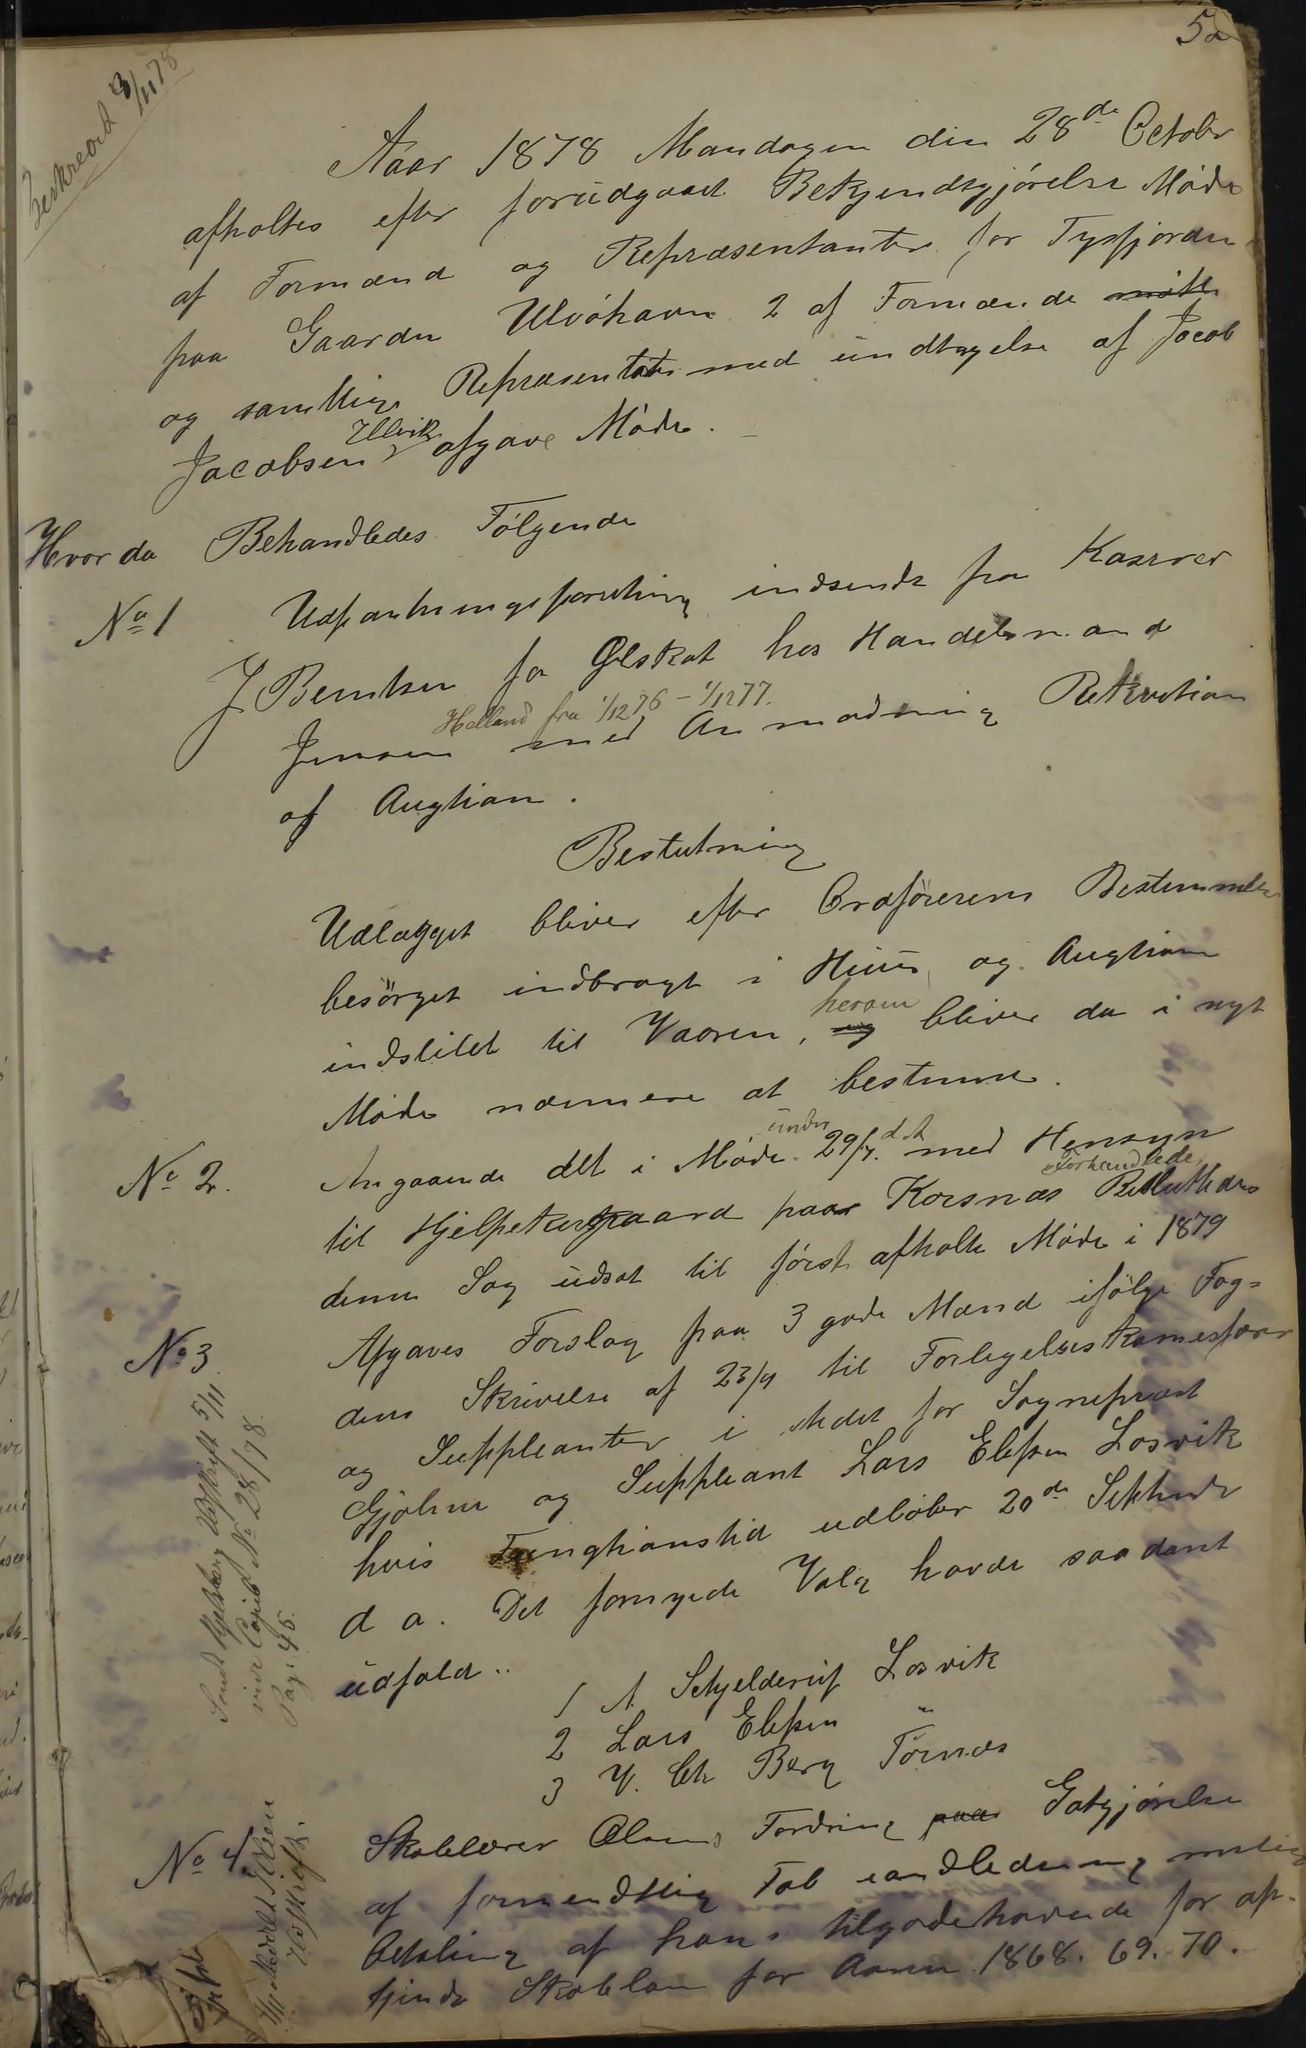 52
Aaar 1878 Mandagen den 28de October
afholtes efter forudgaaet Bekjendtgjørelse Møde
af Formænd og Repræsentanter for Tysfjorden
paa Gaarden Ulvøhavn 2 af Formænde møtte
og samtlige Repræsentater med undtagelse af Jacob
Jacobsen Ullvik afgave Møde.
Hvor da Behandledes Følgende
No 1 Udpantningsforretning indsendt fra Kasserer
J Berntsen for Ølskat hos Handelsmand
Helland fra 1/12 76 - 1/12 77.
Jensen med Anmodning Rekvisition
af Augtion.
Beslutning
Udlægget bliver efter Ordførerens Bestemmelse
besørget indbragt i Huus og Augtion
indstilet til Vaaren, og herom bliver da i nyt
Møde nærmere at bestemme.
No 2. Angaaende det i Møde under 29/7 d A med Hensyn
til Hjelpekirkegaard paa Korsnæs Forhandlede
denne Sag udsat til først afholte Møde i 1879
No 3. Afgaves Forslag paa 3 gode Mænd ifølge Fog=
dens Skrivelse af 23/9 til Forligelseskomesær
og Suppleanter i stedet for Sogneprest
Gjølme og Suppleant Lars Elefsen Losvik
hvis Fungtionstid udløber 20de
d a. Det foregede Valg havde saadant
udfald..
1 A Schjelderup Losvik
2 Lars Elefsen "
3 Chr Berg Tørnæs
Sendt Afskrift 5/11
vide Copieb No 28/78.
Pag: 46.
No 4. Skolelærer Olsens Fordring paa Gotgjørelse
af formendtlig Tab i andledning
Betaling af hans tilgodehavende for op-
tjende Skoleløn for Aaren 1868. 69. 70.
Afskrift.